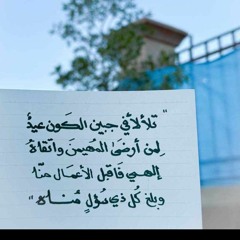 " تلألأ في جبين الكون عيدٌ
لِمن أرضىٰ المُهيمنَ واتّقاهُ
إلهي فَاقبل الأعمال منّا
وبلغ كُل ذي سُؤلٍ مُناه "